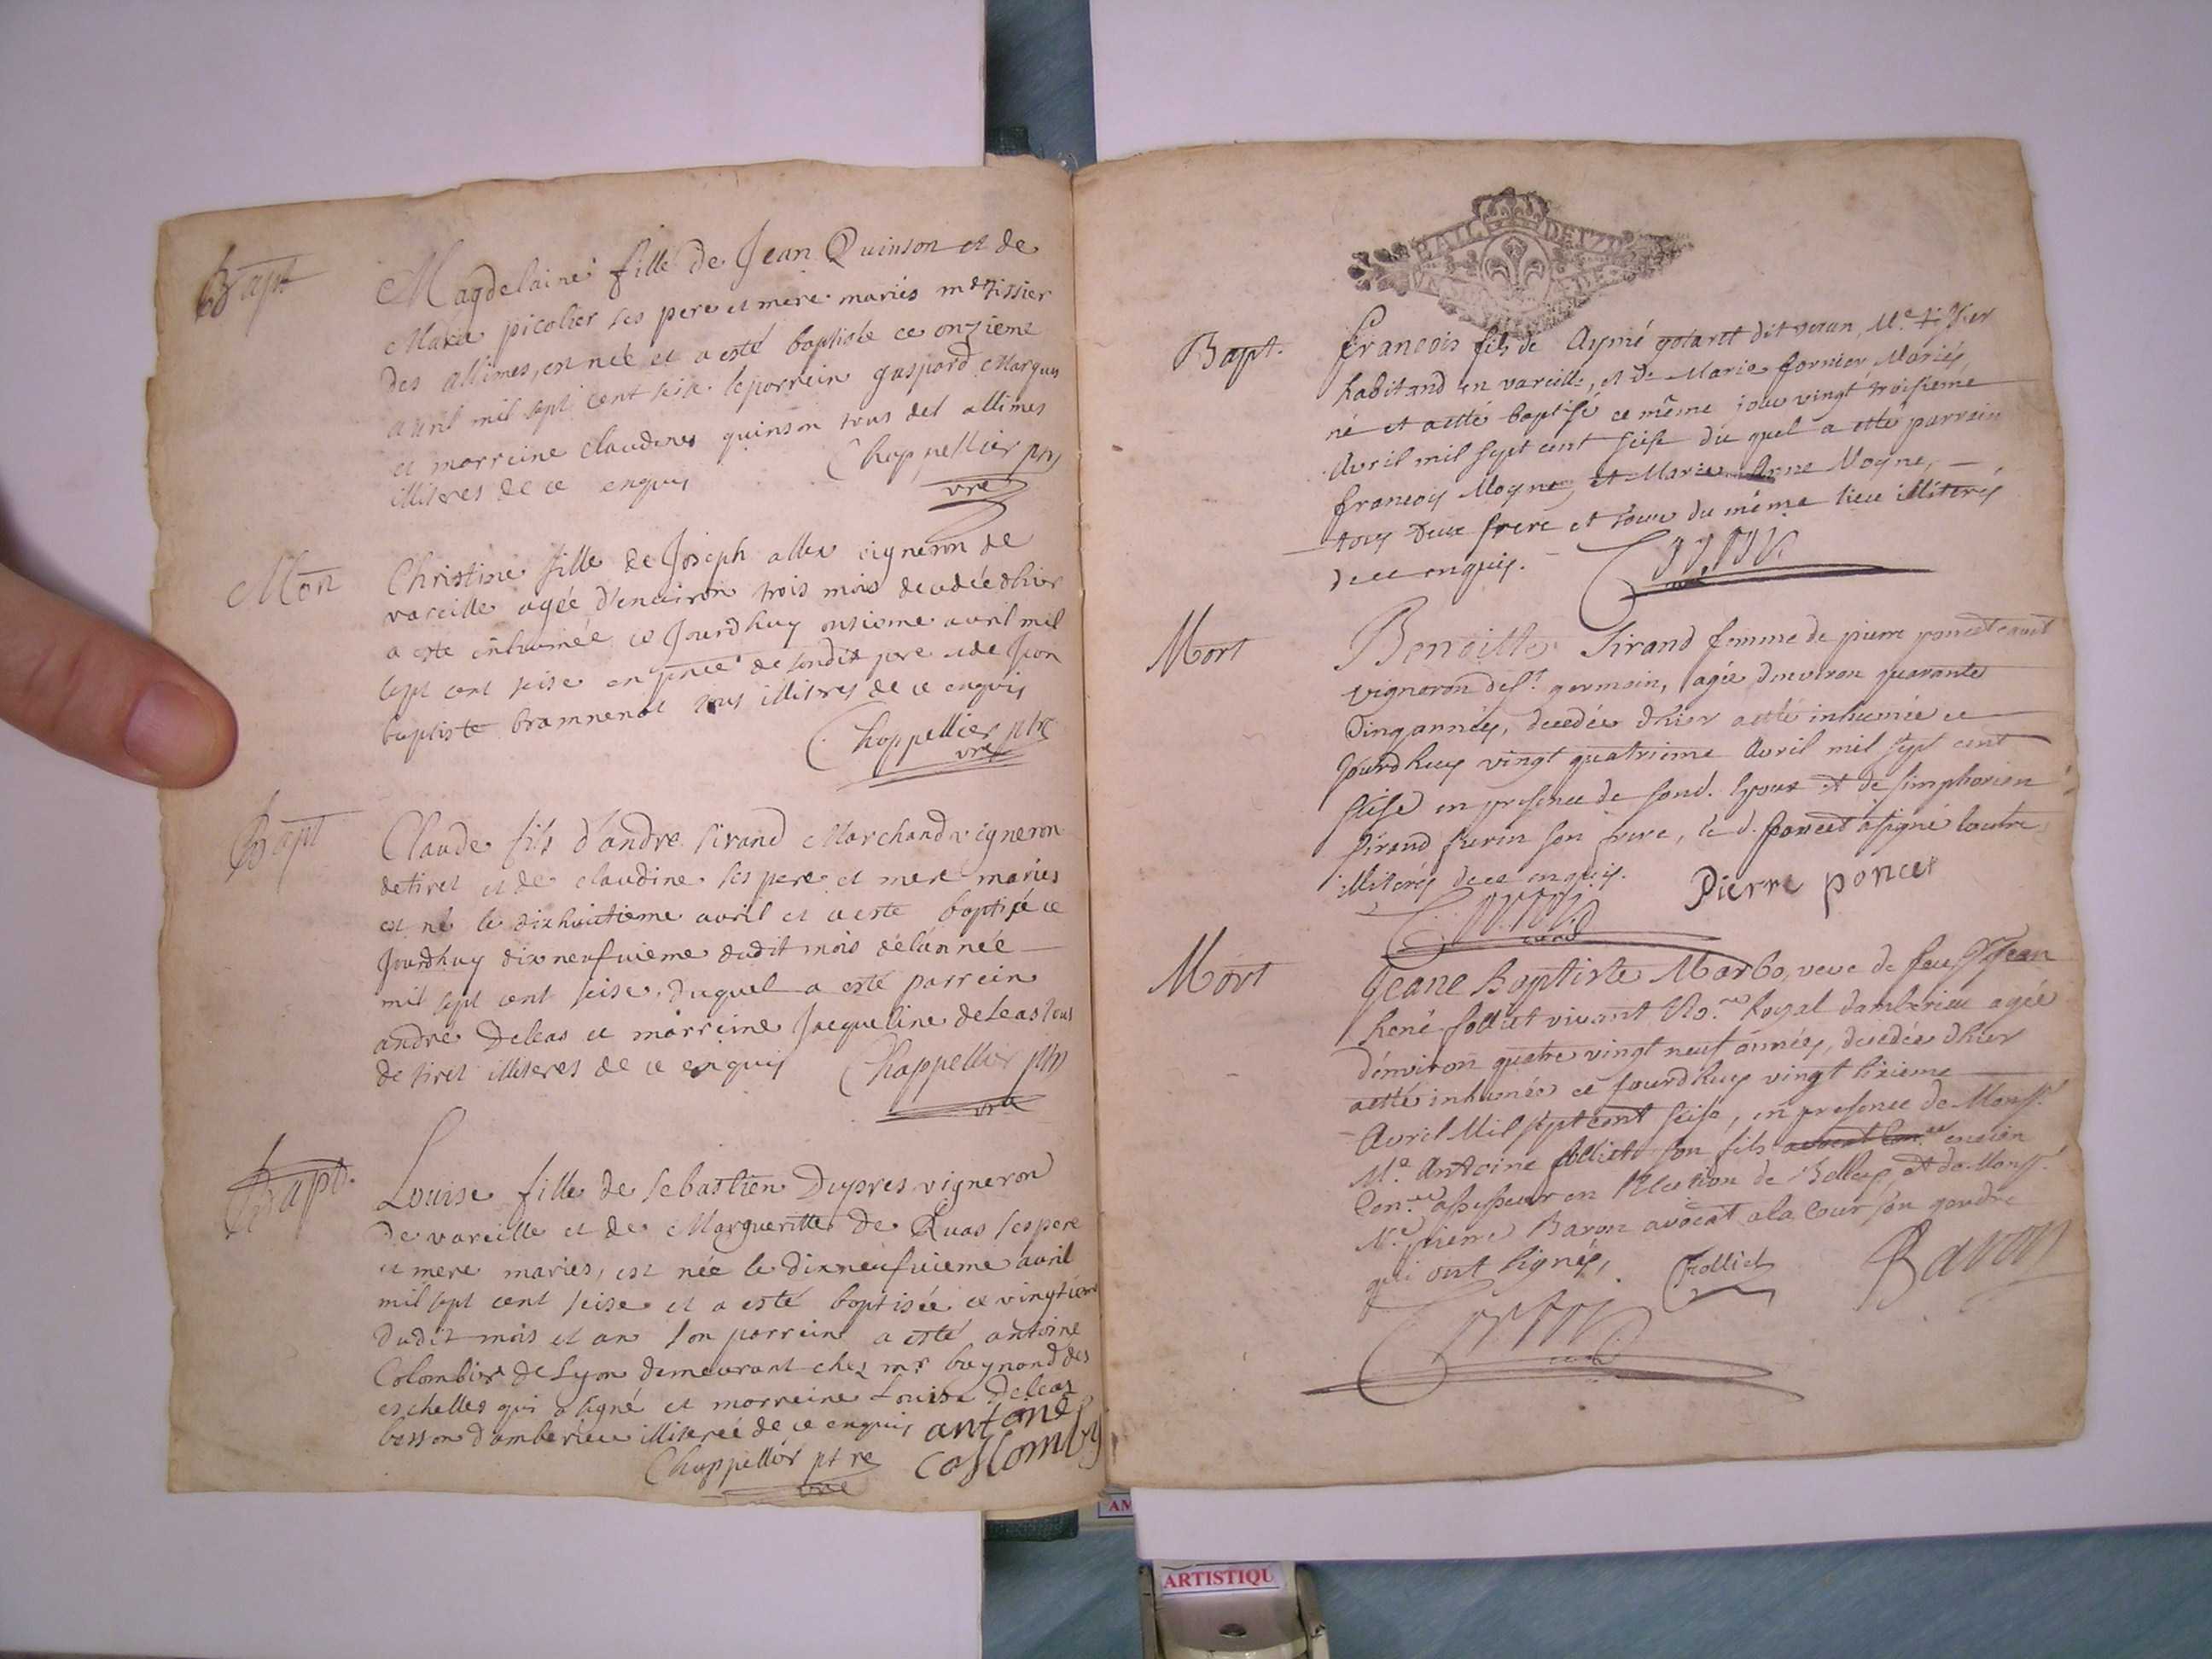 Bapt
Magdelaine fille de Jean Quinson et de
Marie picolier ses pere et mere mariés md tissier
des allimes, est née et a esté baptisée ce onzieme
avril mil sept cent seise le parrein gaspard Margues
et marreine claudine quinson tous des allimes
illiteres de ce enquis
Chappellier ptre
vre
Mort
Christine fille de Joseph allex vigneron de
vareille agée d'environ trois mois decedée dhier
a este inhumée ce Jourdhuy onsieme avril mil
sept cent seise en pnce de sondit pere et de Jean
baptiste tous illitres de ce enquis
Chappellier ptre
vre
Bapt
Claude fils d'andre sirand Marchand vigneron
de tiret et de claudine ses pere et mere mariés
est né le dixhuitieme avril et a este baptisé ce
Jourdhuy dixneufvieme dudit mois de lannée
mil sept cent seise, duquel a esté parrein
andré Deleas et marreine Jacqueline deleas tous
de tiret illiteres de ce enquis
Chappellier ptre
vre
Bapt.
Louise fille de sebastien Dupres vigneron
de vareille et de Margueritte de Quas ses pere
et mere mariés, est née le dixneufvieme avril
mil sept cent seise et a esté baptisée ce vingtieme
dudit mois et an son parrein a esté antoine
Colombier de Lyon demeurant chez mr des
eschelles qui a signé et marreine Louise Deleas
besson d'amberieu illiterée de ce enquis antoine
Chappellier ptre
vre
BAIL
Bapt.
francois fils de Aymé gotaret dit veran, Me tissier
habitand en vareille, et de Marie fornier Mariés
né et a etté baptisé ce même jour vingt troisieme
Avril mil sept cent seise du quel a etté parrain
francois Moyne, et Marie Anne Moyne,
tous deux frere et soeur du même lieu illiterés
de ce enquis.
Mort
Benoitte Sirand femme de pierre poncet
vigneron de st. germain, agée denviron quarante
cinq années, decedée dhier a etté inhumée ce
Jourdhuy vingt quatrieme Avril mil sept cent
seise en presence de sond. Epoux et de simphorien
sirand son frere, le d. poncet a signé lautre
illiterés de ce enquis.
Pierre poncet
curé
Mort
Jeane Baptiste Marbo, veve de feu Sr Jean
René folliet vivant No.re Royal damberieu agée
d'environ quatre vingt neuf années, decedée dhier
a etté inhumée ce jourdhuy vingt sixieme
Avril Mil sept cent seise, en presence de Monsr.
Me. Antoine folliet son fils avocat Con.er ancien
Con.er assesseur en l'Election de Belley, et de Monsr.
Me. pierre Baron avocat a la Cour son gendre
qui ont signés,
Folliet
Baron
curé
ARTISTIQU